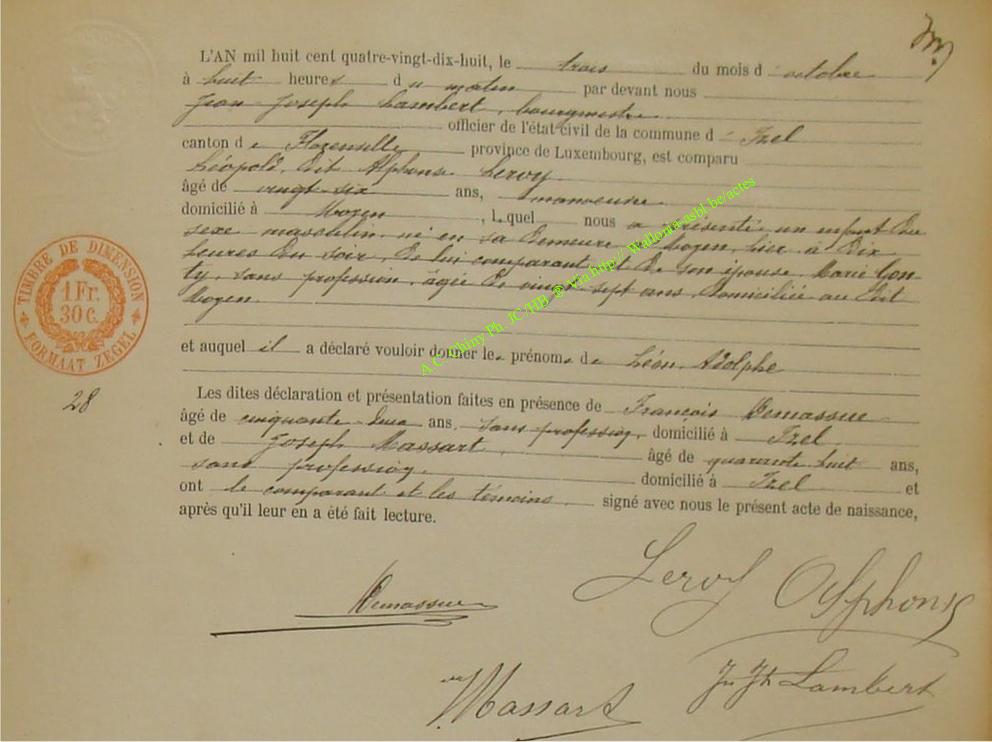 L'AN mil huit cent quatre-vingt-dix-huit, le trois du mois d'octobre
à huit heures du matin par devant nous
Jean Joseph Lambert, bourgmestre
officier de l'état civil de la commune d'Izel
canton de Florenville, province de Luxembourg, est comparu
Léopold, dit Alphonse Leroy,
âgé de vingt-six ans, manoeuvre
domicilié à Moyen, lequel nous a présenté un enfant du
sexe masculin, né en sa demeure à Moyen, hier à dix
heures du soir, de lui comparant et de son épouse Marie Gon
ty, sans profession, âgée de vingt-sept ans, domiciliée au dit
Moyen.
et auquel il a déclaré vouloir donner les prénoms de Léon Adolphe
Les dites déclaration et présentation faites en présence de François Demasure
âgé de cinquante deux ans, sans profession, domicilié à Izel
et de Joseph Massart, âgé de quarante huit ans,
sans profession, domicilié à Izel et
ont le comparant et les témoins signé avec nous le présent acte de naissance,
après qu'il leur en a été fait lecture.
TIMBRE DE DIMENSION
1 Fr.
30 C.
FORMAAT ZEGEL
28
A.C. Chiny Ph. JC/HB ® via http://Wallonia-asbl.be/actes
Leroy Alphonse
Demasure
Jn Jh Lambert
Massart